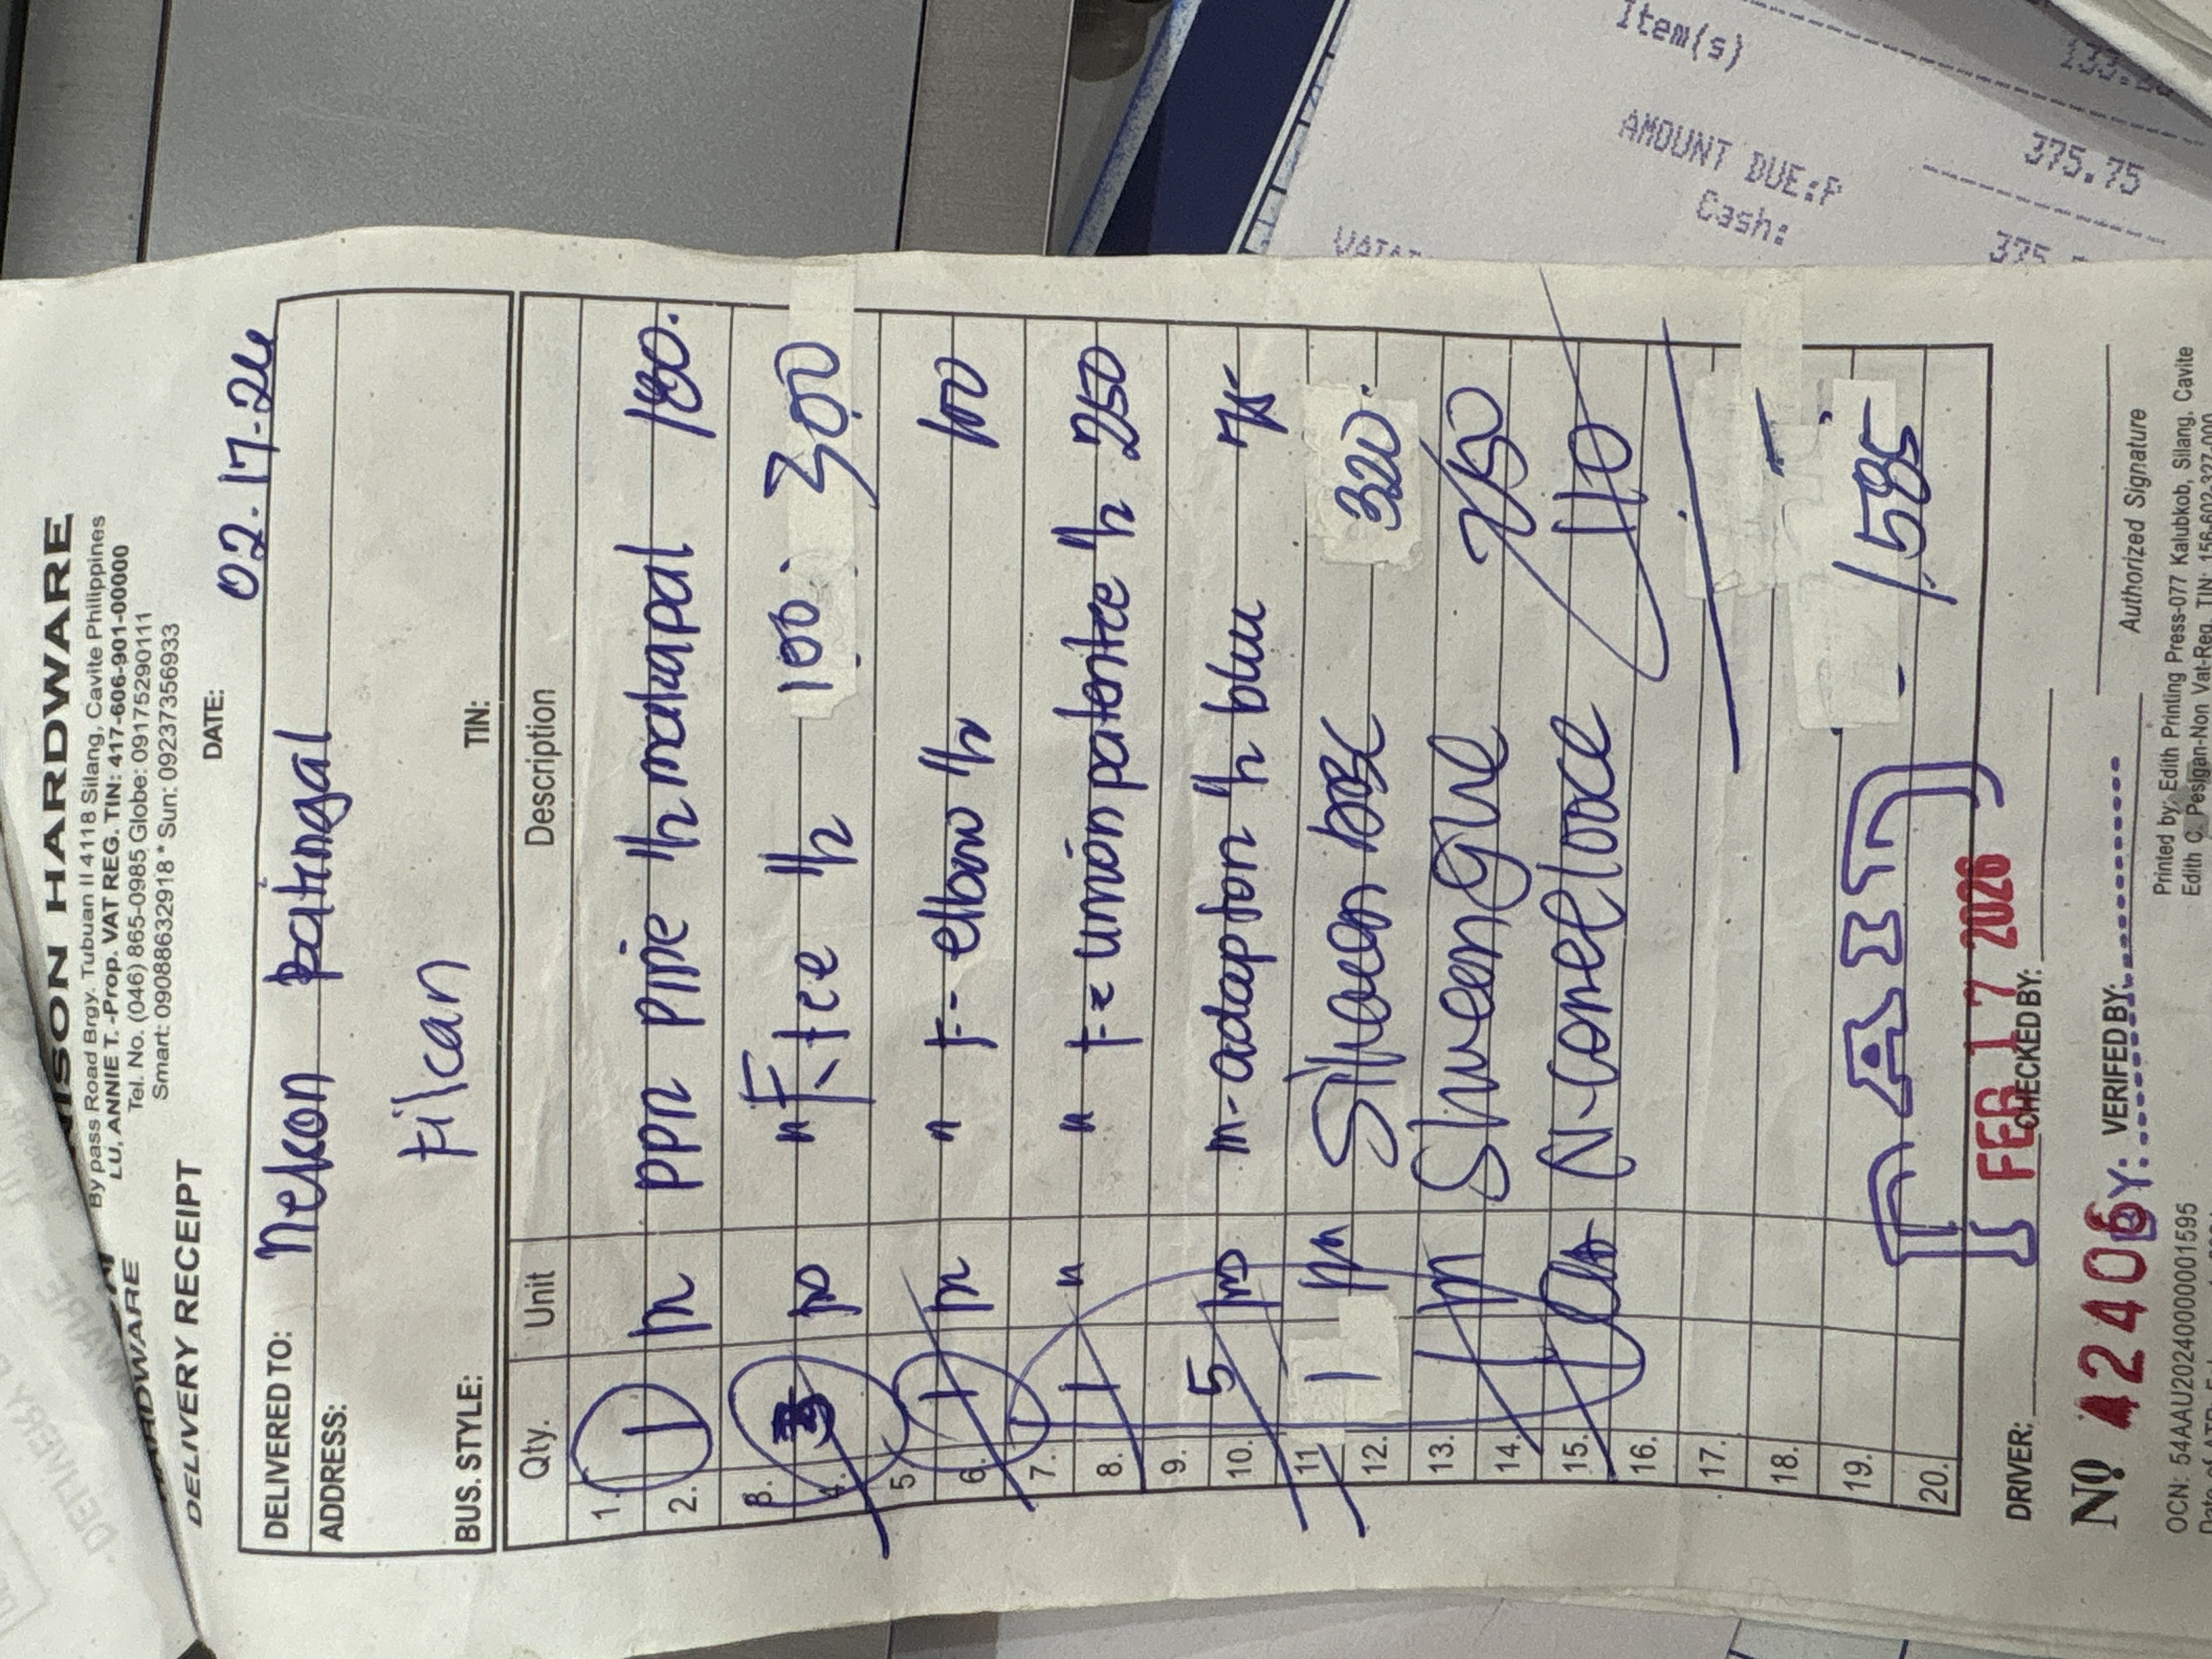 HARDWARE
DELIVERY RECEIPT
NISON HARDWARE
By pass Road Brgy. Tubuan II 4118 Silang, Cavite Philippines
LU, ANNIE T. -Prop. VAT REG. TIN: 417-606-901-00000
Tel. No. (046) 865-0985 Globe: 09175290111
Smart: 09088632918 * Sun: 09237356933
DATE: 02-17-26
DELIVERED TO: Nelson patingal
ADDRESS:
Filcan
BUS. STYLE: TIN:
Qty. Unit Description
1.
2. 1 ppr pipe 1/2 makapal 180.
3.
4. 3 " F. tee 1/2 100. 300
5
6. 1 " F- elbow 1/2 100
7.
8. 1 " " F= union patente 1/2 250
9.
10. 5 m-adaptor 1/2 blue 75
11
12. 1 320.
13.
14. 250
15. 110
16.
17.
18.
19. 1,585
20.
PAID
FEB 17 2026
BY:
DRIVER: CHECKED BY:
Nº 42406 VERIFIED BY: Authorized Signature
OCN: 54AAU20240000001595
Printed by: Edith Printing Press-077 Kalubkob, Silang, Cavite
Edith C. Pesigan-Non Vat-Reg. TIN: 156-602-327-000
Item(s)
133.
AMOUNT DUE:P 375.75
Cash: 375.